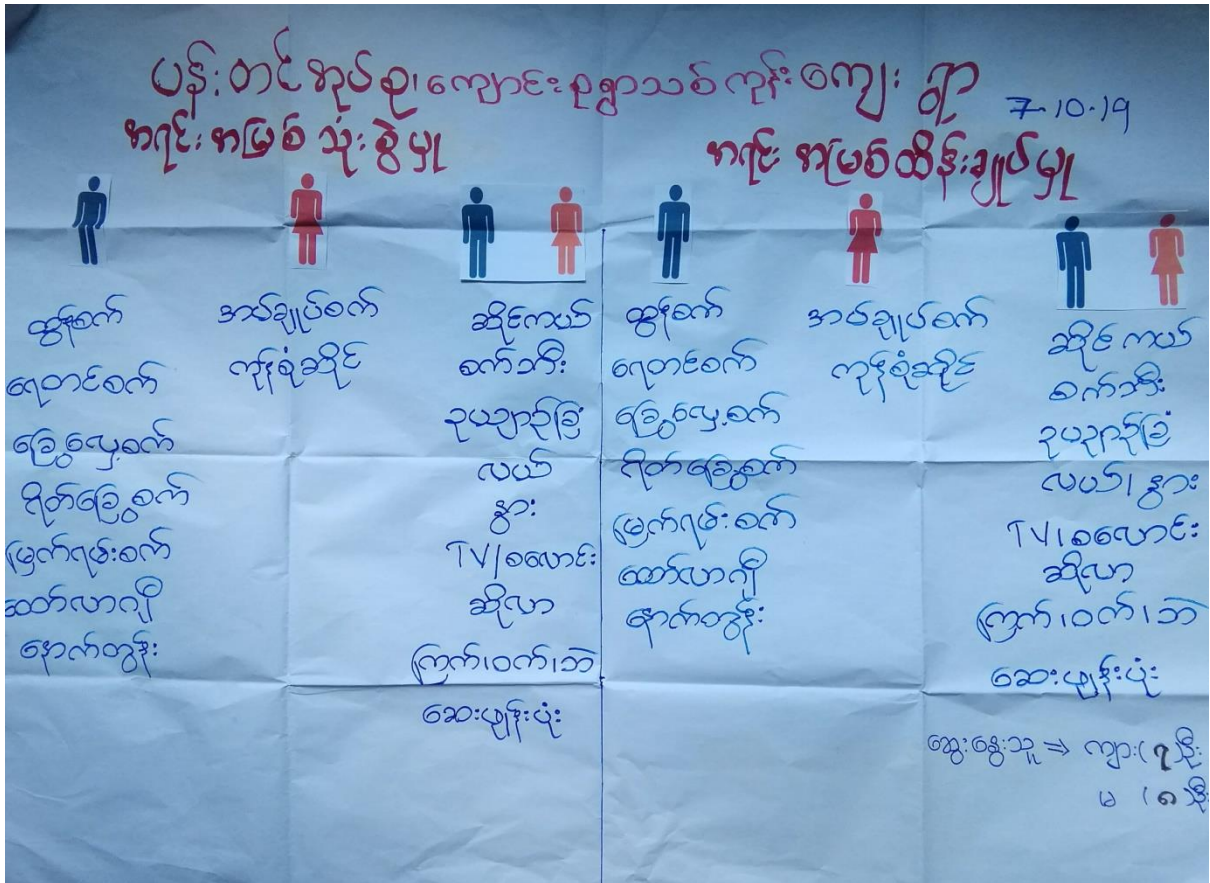 ပန်းတင်အုပ်စု၊ ကျောင်းစုရွာသစ်ကုန်းကျေးရွာ
7.10.19
အရင်းအမြစ် သုံးစွဲမှု
အရင်းအမြစ်ထိန်းချုပ်မှု
ထွန်စက်
ရေတင်စက်
ခြွေလှေ့စက်
ရိတ်ခြွေစက်
မြက်ရမ်းစက်
ထော်လာဂျီ
နောက်တွန်း
အပ်ချုပ်စက်
ကုန်စုံဆိုင်
ဆိုင်ကယ်
စက်ဘီး
ဥယျာဉ်ခြံ
လယ်
နွား
TV/စလောင်း
ဆိုလာ
ကြက်၊ဝက်၊ဘဲ
ဆေးဖျန်းပုံး
ထွန်စက်
ရေတင်စက်
ခြွေလှေ့စက်
ရိတ်ခြွေစက်
မြက်ရမ်းစက်
ထော်လာဂျီ
နောက်တွန်း
အပ်ချုပ်စက်
ကုန်စုံဆိုင်
ဆိုင်ကယ်
စက်ဘီး
ဥယျာဉ်ခြံ
လယ်၊ နွား
TV၊စလောင်း
ဆိုလာ
ကြက်၊ဝက်၊ဘဲ
ဆေးဖျန်းပုံး
ဆွေးနွေးသူ ⇒ ကျား(၇)ဦး
မ (၈)ဦး